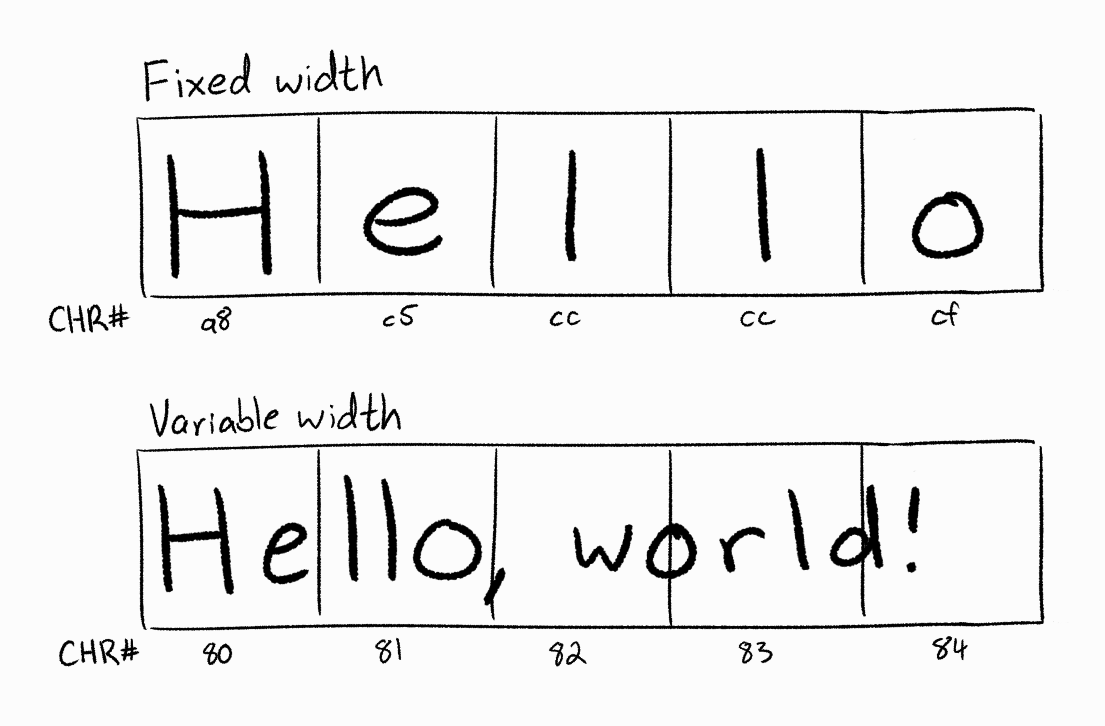 Fixed width
H e l l o
CHR# a8 c5 cc cc cf
Variable width
Hello, world!
CHR# 80 81 82 83 84